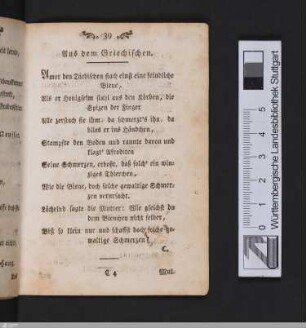 39
Aus dem Griechischen.
Amor den Diebischen stach einst eine feindliche
Biene,
Als er Honigseim stahl aus den Körben, die
Spitzen der Finger
Alle zerstach sie ihm; da schmerzt's ihn, da
blies er ins Händchen,
Stampfte den Boden und rannte davon und
klagt' Afroditen
Seine Schmerzen, erboßt, daß solch' ein win-
ziges Thierchen,
Wie die Biene, doch solche gewaltige Schmer-
zen verursacht.
Lächelnd sagte die Mutter: Wie gleichst du
dem Bienchen nicht selber,
Bist so klein nur und schaffst doch solche ge-
waltige Schmerzen!
C.
C 4
Mut-
Württembergische Landesbibliothek Stuttgart